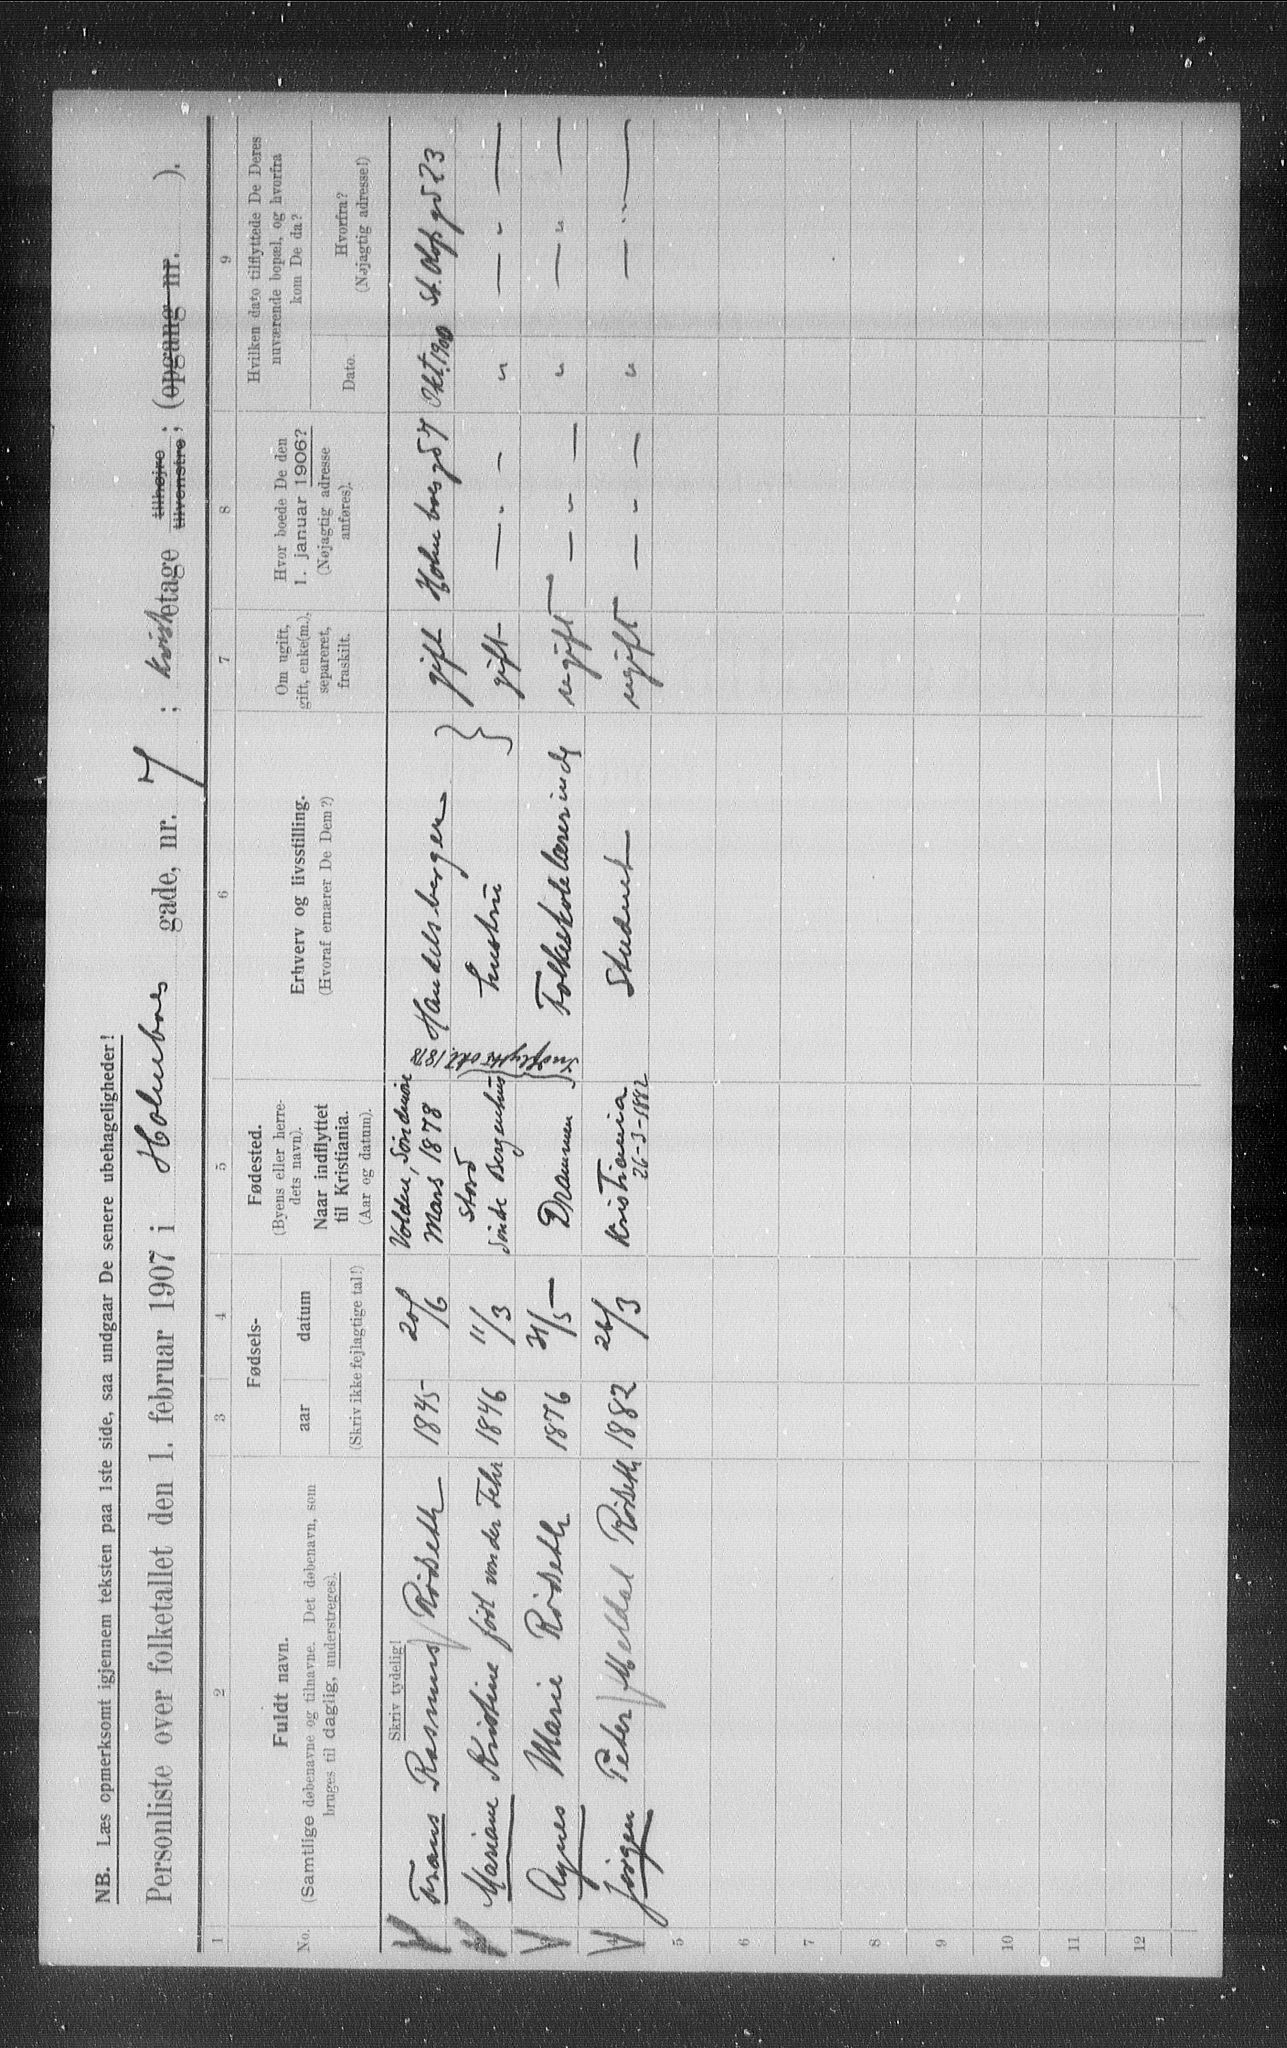 NB. Læs opmerksomt igjennem teksten paa 1ste side, saa undgaar De senere ubehageligheder!
Personliste over folketallet den 1. februar 1907 i Holmboes gade, nr. 7; kvistetage tilhøjre tilvenstre; (opgang nr. ).
1 2 3 4 5 6 7 8 9
No.
Fuldt navn.
(Samtlige døbenavne og tilnavne. Det døbenavn, som
bruges til daglig, understreges).
Fødsels-
aar datum
(Skriv ikke fejlagtige tal!)
Fødested.
(Byens eller herre-
dets navn).
Naar indflyttet
til Kristiania.
(Aar og datum).
Erhverv og livsstilling.
(Hvoraf ernærer De Dem?)
Om ugift,
gift, enke(m.),
separeret,
fraskilt.
Hvor boede De den
1. januar 1906?
(Nøjagtig adresse
anføres).
Hvilken dato tilflyttede De Deres
nuværende bopæl, og hvorfra
kom De da?
Dato.
Hvorfra?
(Nøjagtig adresse!)
Skriv tydelig!
Frans Rasmus Röseth 1845 20/6 Volden, Söndmöre Mars 1878 Handelsborger gift Holmboes gd 7 Okt. 1900 St. Olafs gd 23
Mariane Kristine född von der Fehr 1846 11/3 Stord Söndre Bergenhus Indflyttet okt. 1878 hustru gift — " — " — " —
Agnes Marie Rösseth 1876 31/5 Drammen Folkeskolelærerinde ugift — " — " — " —
4 Jörgen Peter Meldal Rösseth 1882 26/3 Kristiania 26-3-1882 Student ugift — " — " — " —
5
6
7
8
9
10
11
12